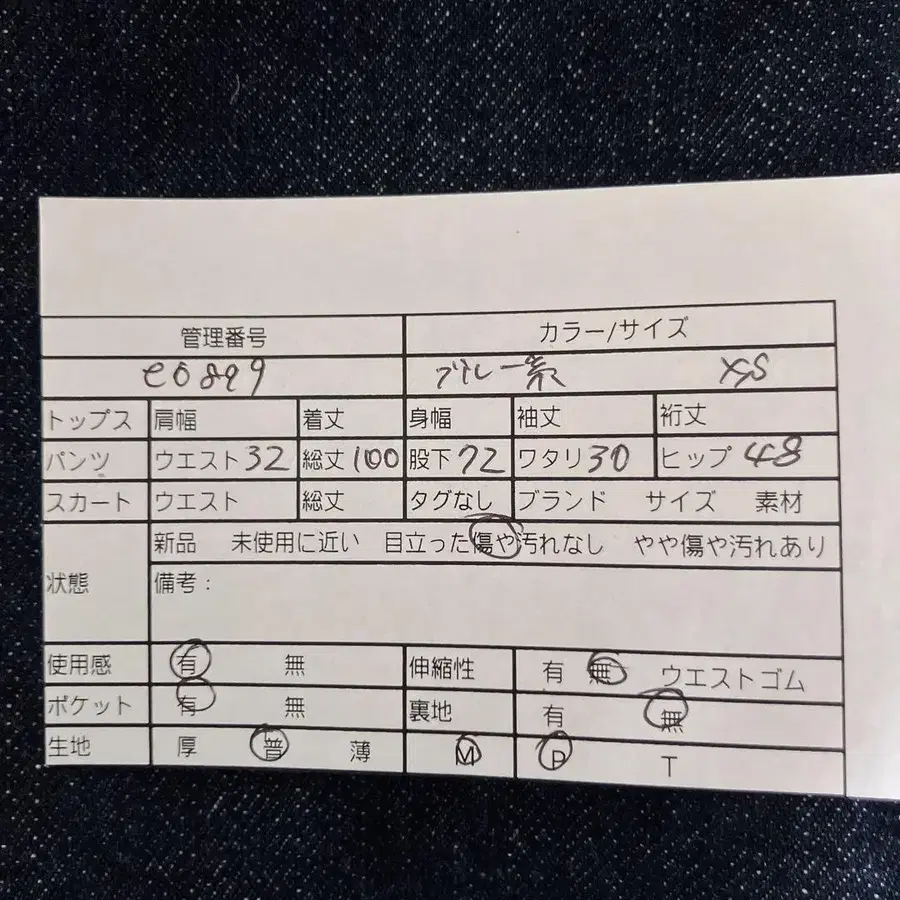 管理番号 カラー/サイズ
e0899 グレー系 XS
トップス 肩幅 着丈 身幅 袖丈 裄丈
パンツ ウエスト 32 総丈 100 股下 72 ワタリ 30 ヒップ 48
スカート ウエスト 総丈 タグなし ブランド サイズ 素材
新品 未使用に近い 目立った傷や汚れなし やや傷や汚れあり
状態 備考：
使用感 有 無 伸縮性 有 無 ウエストゴム
ポケット 有 無 裏地 有 無
生地 厚 普 薄 M P T